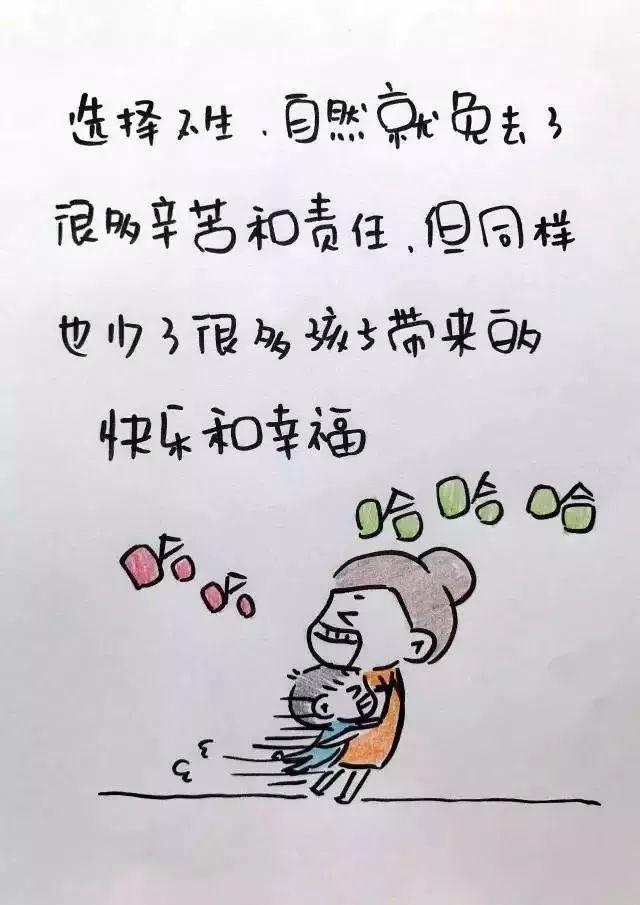 选择不生、自然就免去了
很多辛苦和责任、但同样
也少了很多孩子带来的
快乐和幸福
哈哈哈
哈哈